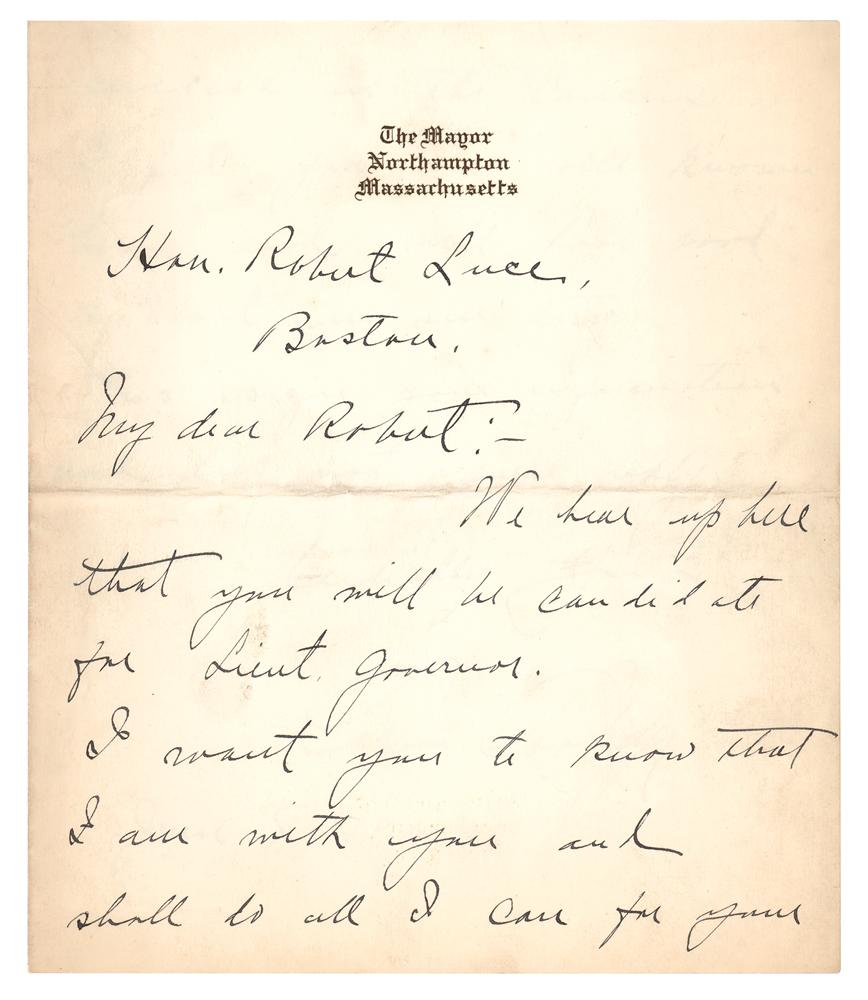 The Mayor
Northampton
Massachusetts
Hon. Robert Luce,
Boston.
My dear Robert:-
We hear up here
that you will be candidate
for Lieut. Governor.
I want you to know that
I am with you and
shall do all I can for your